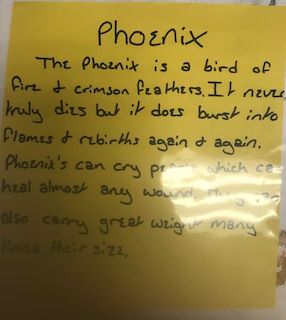 Phoenix
The Phoenix is a bird of
fire & crimson feathers. It never
truly dies but it does burst into
flames & rebirths again & again.
Phoenix's can cry which ca
heal almost any wound. They
also carry great weight many
times their size.